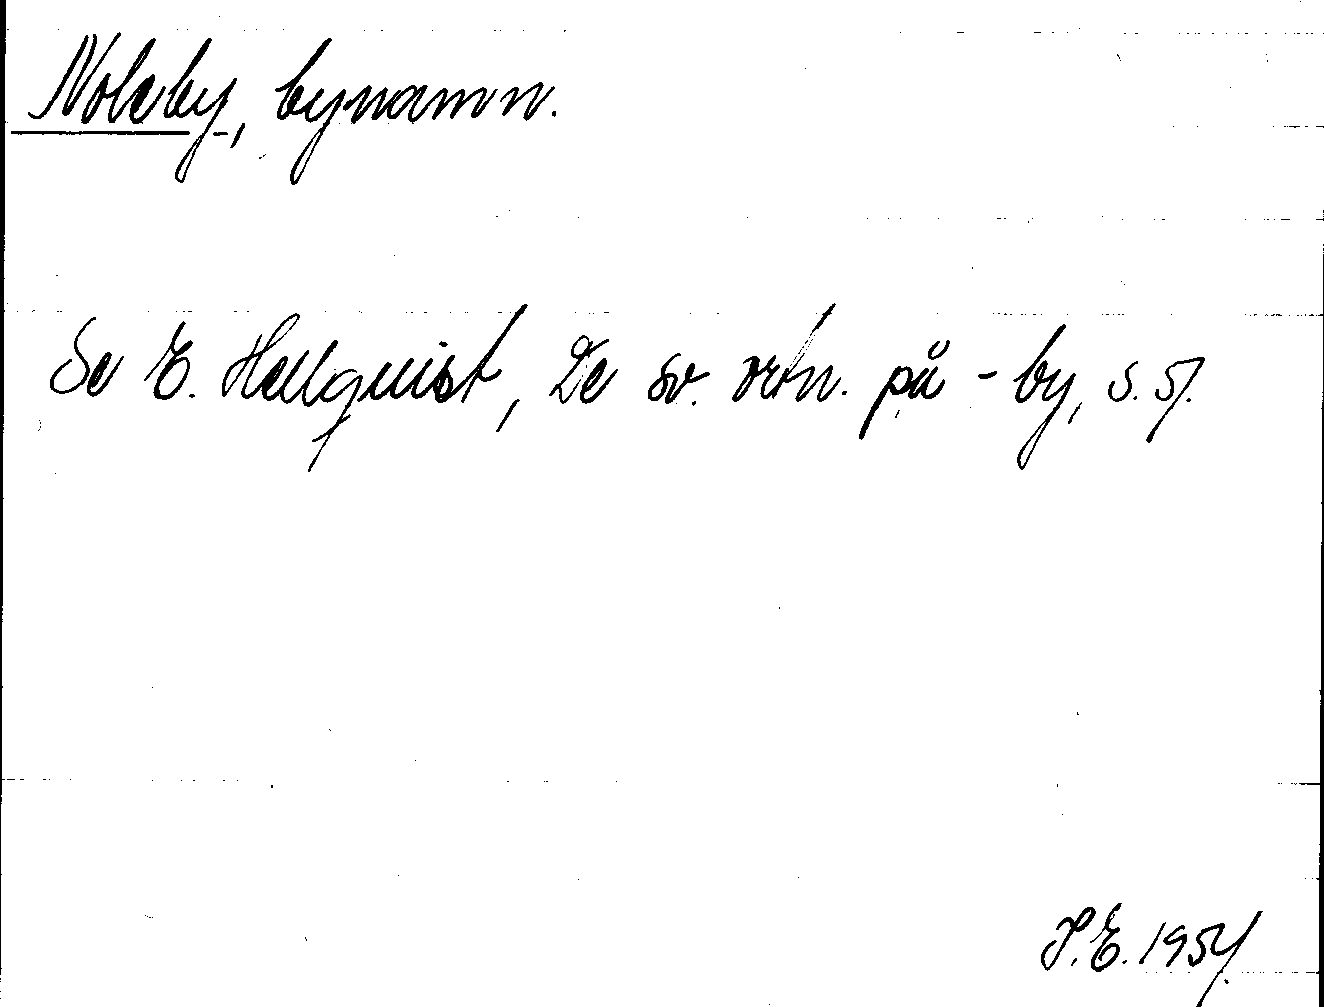 Noleby, bynamn.
Se E. Hellquist, De sv. ortn. på -by, s. 57.
S.E. 1954.